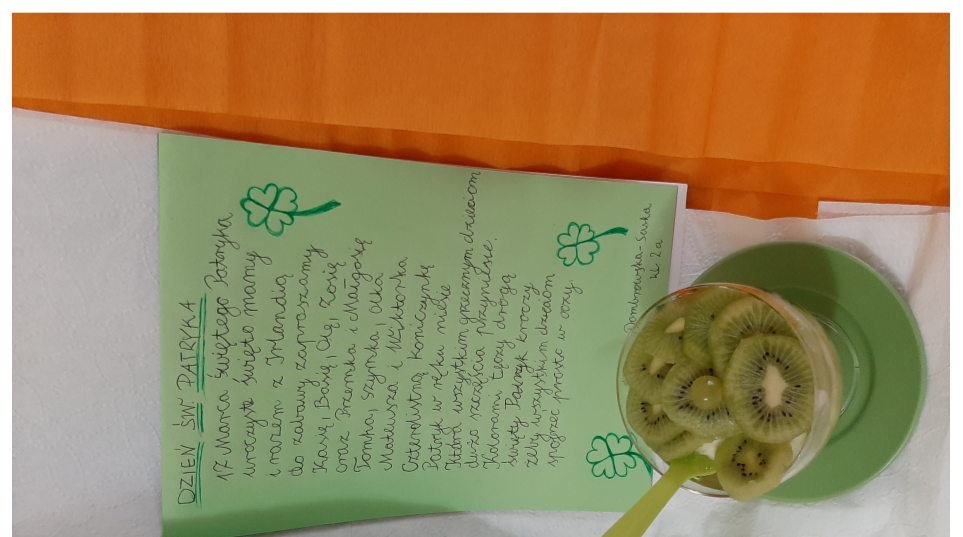 DZIEŃ ŚW. PATRYKA
17 Marca świętego Patryka
uroczyste święto mamy
i razem z Irlandią
do zabawy zapraszamy
Kasię, Basię, Olę, Zosię
oraz Przemka i Małgosię
Tomka, Szymka, Olka
Mateusza i Wiktorka
Czterolistną koniczynkę
Patryk w ręku niesie
Która wszystkim grzecznym dzieciom
dużo szczęścia przyniesie.
Kolorami tęczy drogą
święty Patryk kroczy
żeby wszystkim dzieciom
spojrzeć prosto w oczy
Dombrowska-Sawka
kl. 2a